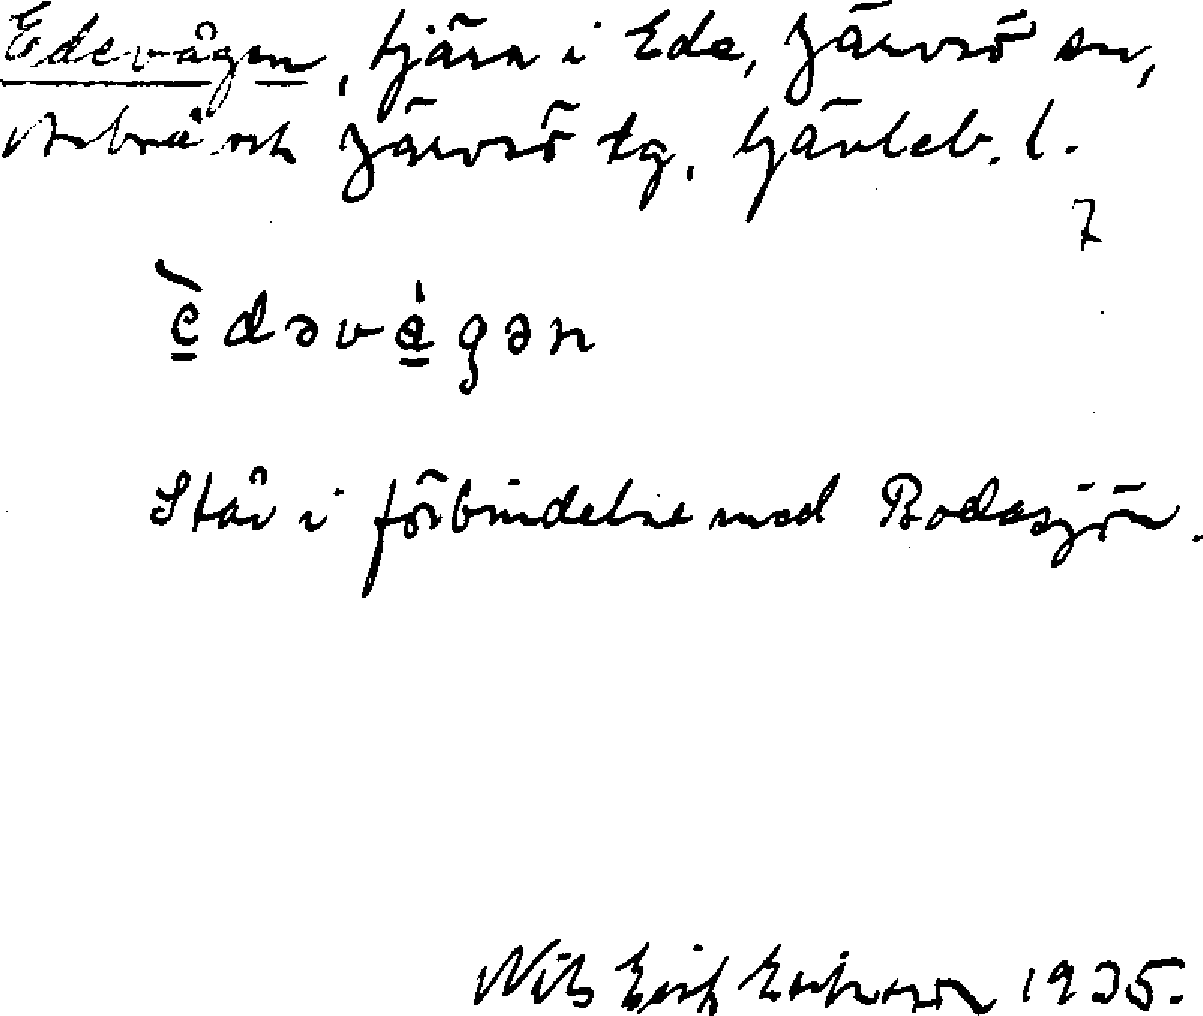 Edevågen, tjärn i Ede, Järvsö sn,
Arbrå och Järvsö tg, Gävleb. l.
7
è̱dəvå̱gən
Står i förbindelse med Rodasjön.
Nils Erik Eriksson 1935.